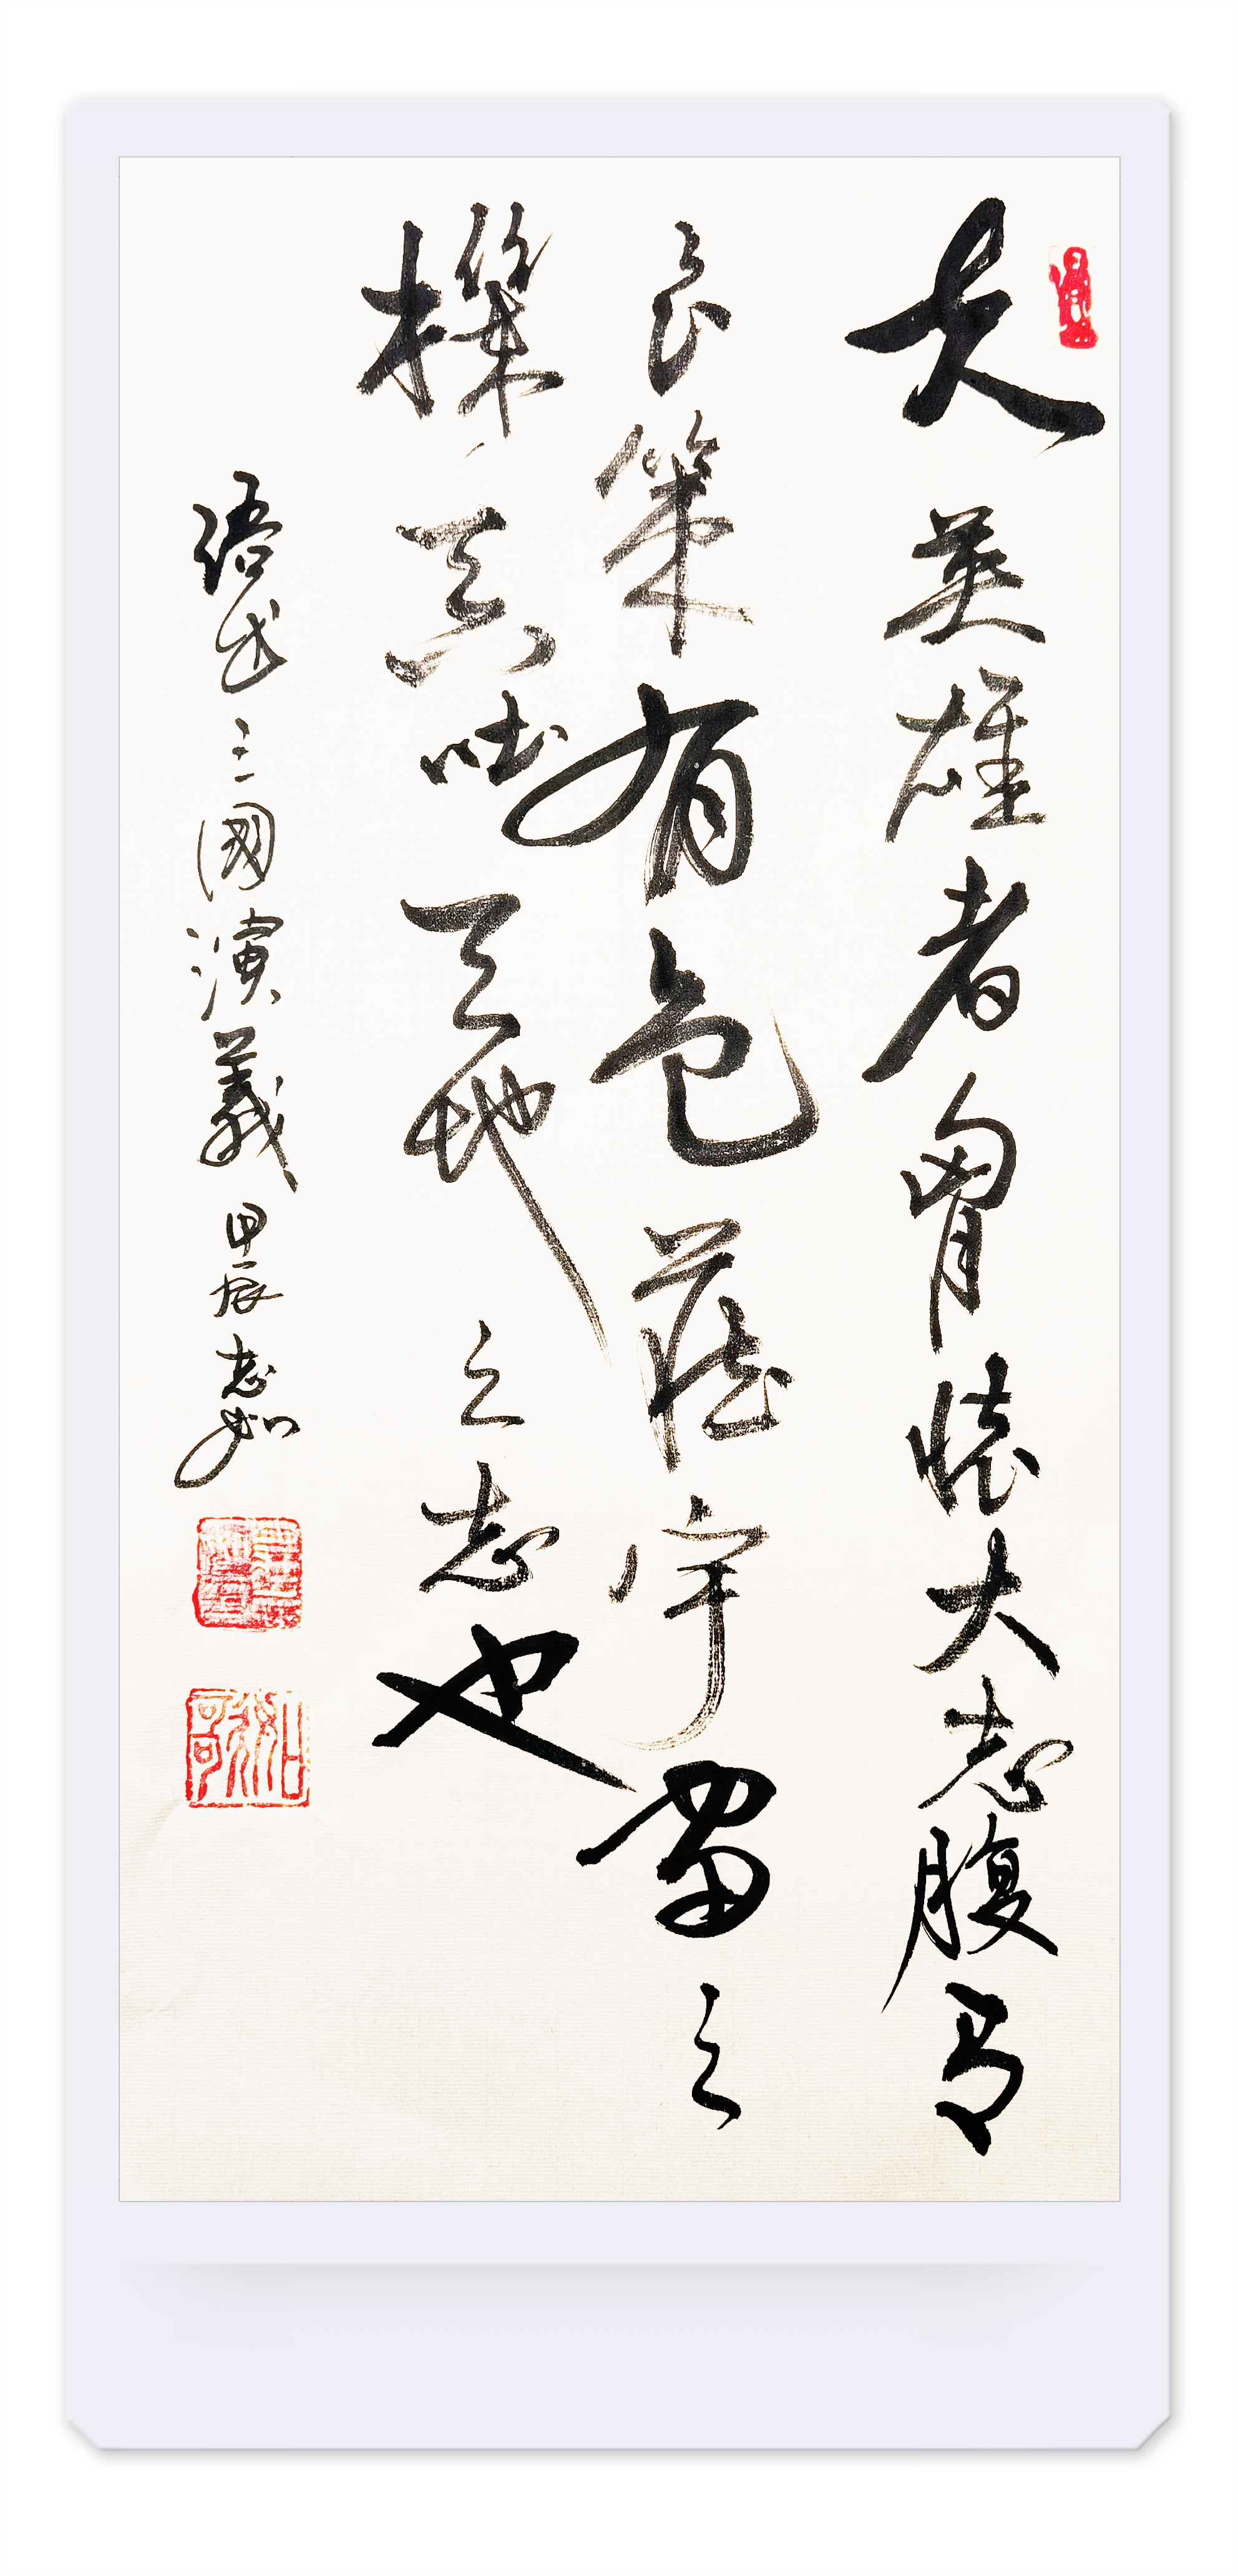 夫英雄者胷懷大志腹有
良策有包藏宇宙之
機吞吐天地之志也
語出三國演義甲辰志如